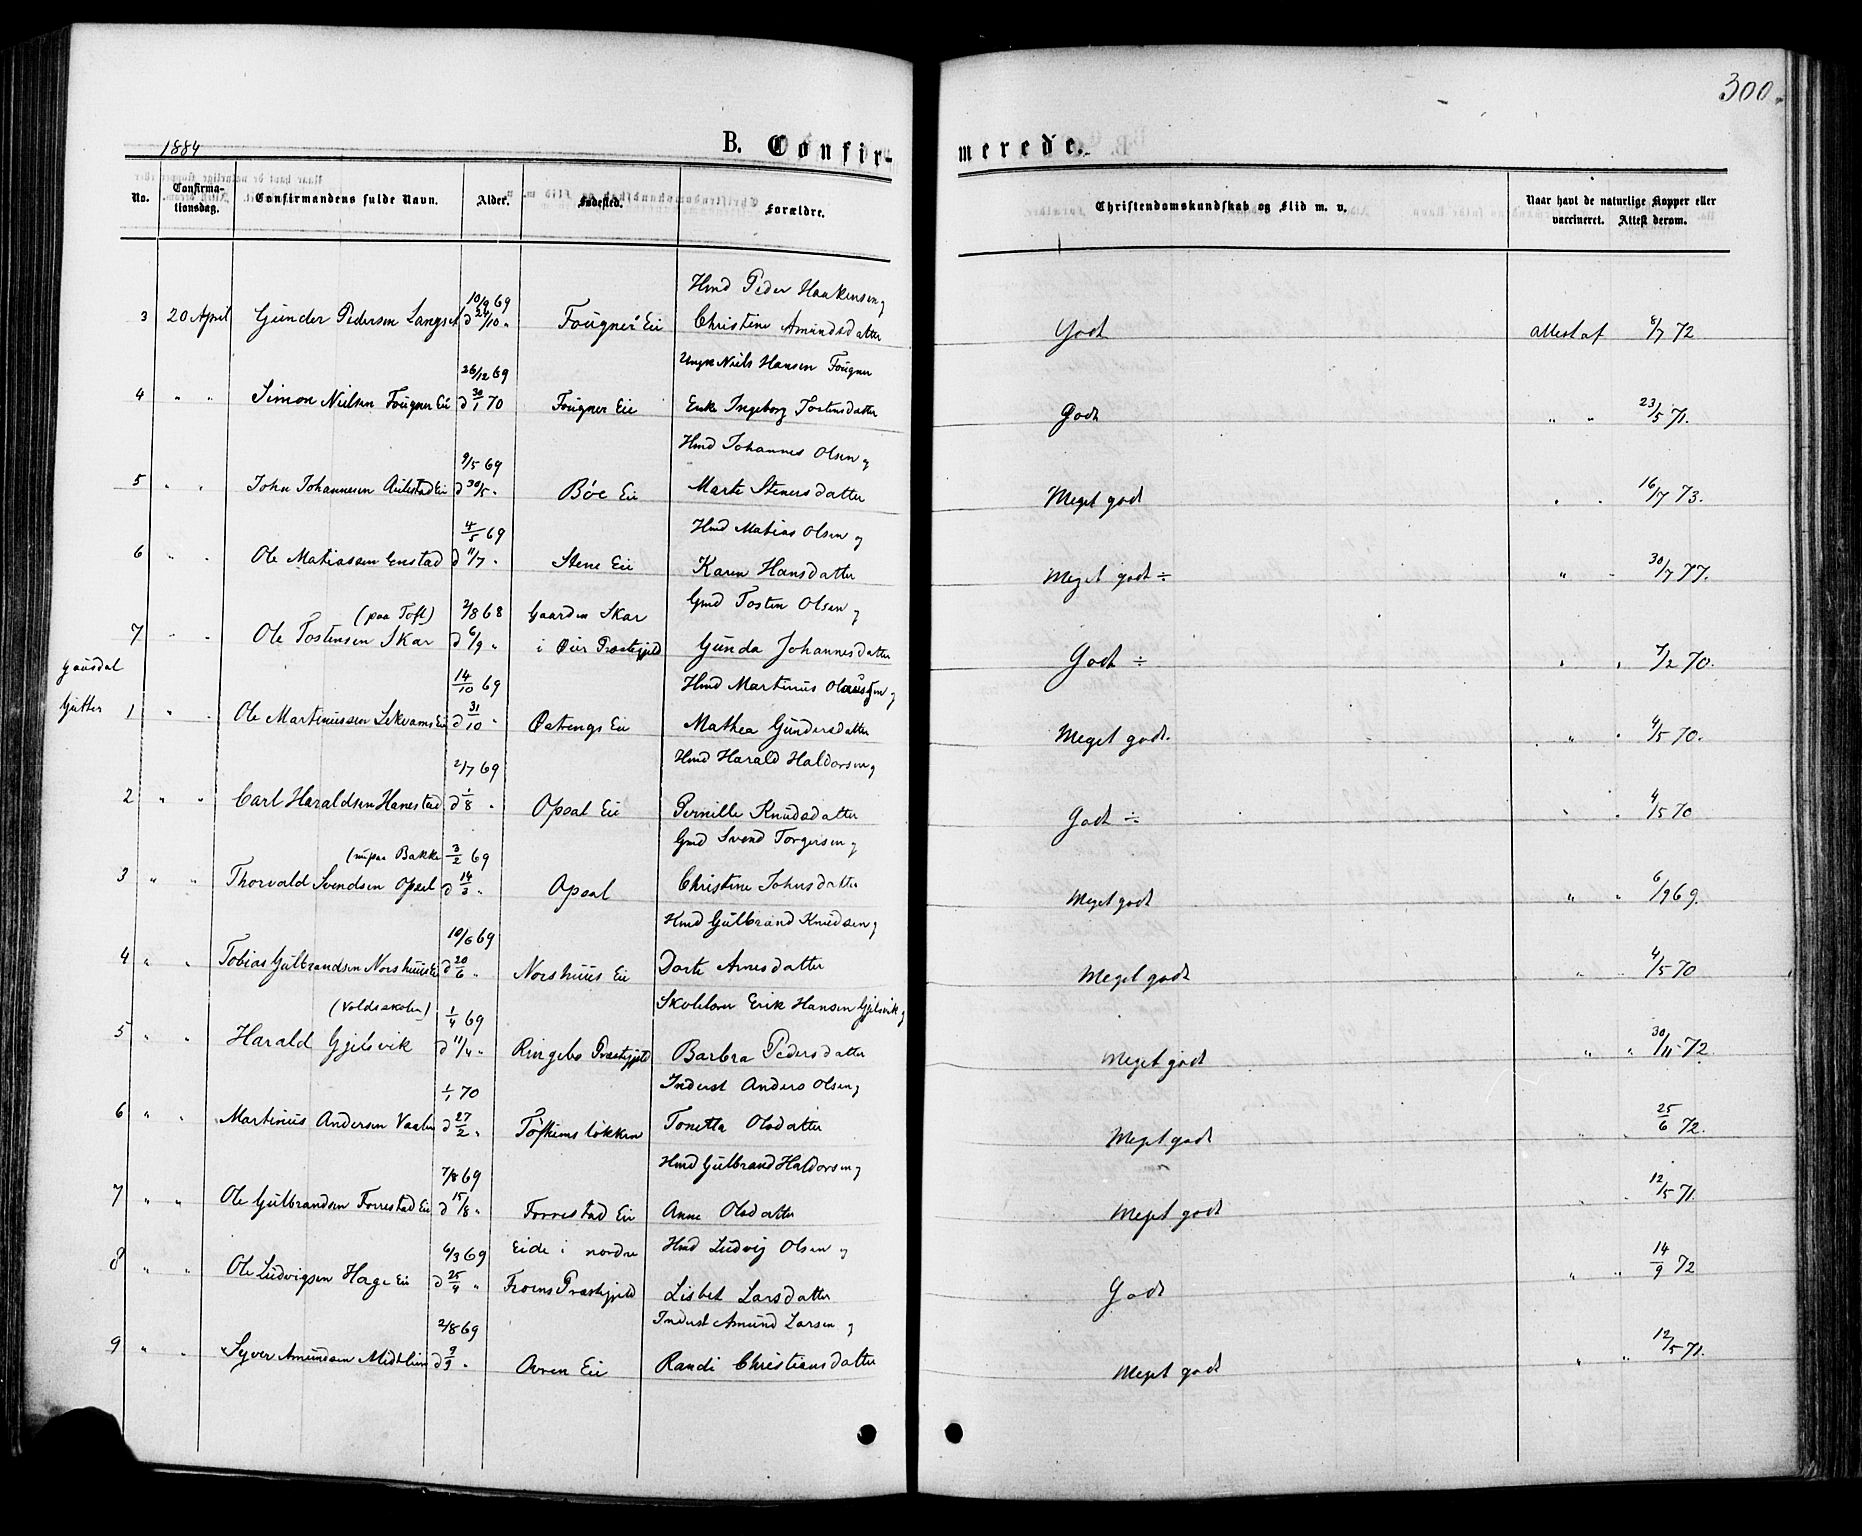 300.
1884
B. Confir-
merede.
No.
Confirma-
tionsdag.
Confirmandens fulde Navn.
Alder.
Fødested.
Forældre.
Christendomskundskab og Flid m. v.
Naar havt de naturlige Kopper eller
vaccineret. Attest derom.
10/9 69 Hmd Peder Haakensen og
3 20 April Gunder Pedersen Langset d 24/10 " Fougner Eie Christine Amundsdatter Godt attest af 8/7 72
26/12 69 Niels Hansen Fougner
4 " " Simon Nielsen Fougner Eie d 30/1 70 Fougner Eie Enke Ingeborg Tostensdatter Godt " " 23/5 71.
9/5 69 Hmd Johannes Olsen og
5 " " John Johannesen Aulestad Eie d 30/5 " Böe Eie Marte Stenersdatter Meget godt " " 16/7 73.
4/5 69 Hmd Matias Olsen og
6 " " Ole Matiassen Enstad d 11/7 " Stene Eie Karen Hansdatter Meget godt ÷ " " 30/7 77.
(paa Toft) 2/8 68 Gaarden Skar Gmd Tosten Olsen og
7 " " Ole Tostensen Skar d 6/9 " i Öier Præstegjeld Gunda Johannesdatter Godt ÷ " " 7/2 70.
Gausdal
Gutter
14/10 69 Hmd Martinus Olaussen og
1 " " Ole Martinussen Sekvams Eie d 31/10 " Östengs Eie Mathea Gundersdatter Meget godt. " " 4/5 70.
2/7 69 Hmd Harald Haldorsen og
2 " " Carl Haraldsen Hanestad d 1/8 " Opsal Eie Pernille Knudsdatter Godt ÷ " " 4/5 70
Bakke 3/2 69 Gmd Svend Torgersen og
3 " " Thorvald Svendsen Opsal d 14/3 " Opsal Christine Johnsdatter Meget godt " " 6/9 69.
10/6 69 Hmd Gulbrand Knudsen og
4 " " Tobias Gulbrandsen Norshuus Eie d 20/6 " Norshuus Eie Dorte Arnesdatter Meget godt " " 4/5 70
(Voldsskolen) 1/4 69 Skolelærer Erik Hansen Gjelsvik og
5 " " Harald Gjelsvik d 11/4 " Ringebo Præstegjeld Barbra Pedersdatter Meget godt " " 30/11 72.
1/1 70 Inderst Anders Olsen og
6 " " Martinus Andersen Vaalen d 27/2 " Töfteims lökken Tonetta Olsdatter Meget godt " " 25/6 72.
7/8 69 Hmd Gulbrand Haldorsen og
7 " " Ole Gulbrandsen Forrestad Eie d 15/8 " Forrestad Eie Anne Olsdatter Meget godt " " 12/5 71.
6/3 69 Eide i nordre Hmd Ludvig Olsen og
8 " " Ole Ludvigsen Hage Eie d 25/4 " Froens Præstegjeld Lisbet Larsdatter Godt " " 14/9 72
2/8 69 Inderst Amund Larsen og
9 " " Syver Amundsen Midtlien d 9/9 " Avren Eie Randi Christiansdatter Meget godt " " 12/5 71.